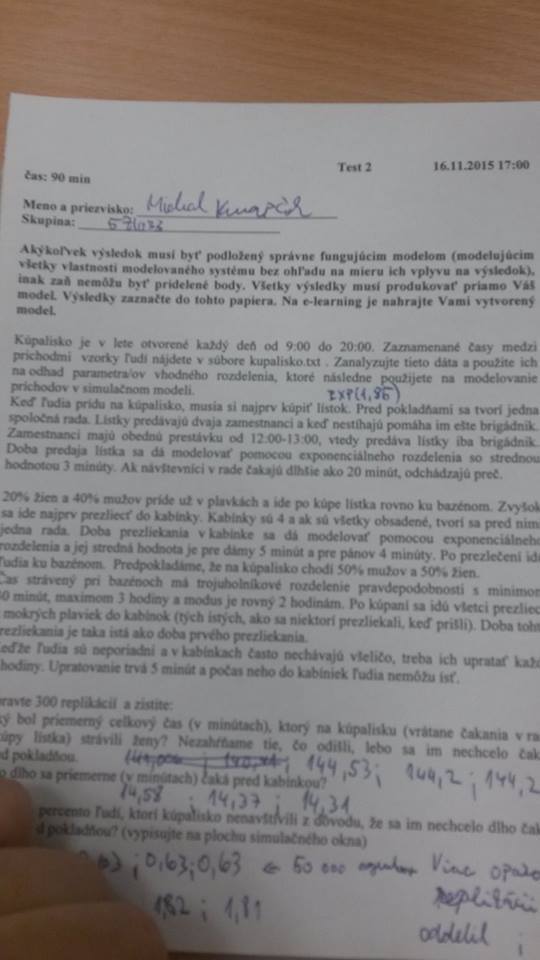 Test 2 16.11.2015 17:00
čas: 90 min
Meno a priezvisko: Michal
Skupina:
Akýkoľvek výsledok musí byť podložený správne fungujúcim modelom (modelujúcim
všetky vlastnosti modelovaného systému bez ohľadu na mieru ich vplyvu na výsledok),
inak zaň nemôžu byť pridelené body. Všetky výsledky musí produkovať priamo Váš
model. Výsledky zaznačte do tohto papiera. Na e-learning je nahrajte Vami vytvorený
model.
Kúpalisko je v lete otvorené každý deň od 9:00 do 20:00. Zaznamenané časy medzi
príchodmi vzorky ľudí nájdete v súbore kupalisko.txt . Zanalyzujte tieto dáta a použite ich
na odhad parametra/ov vhodného rozdelenia, ktoré následne použijete na modelovanie
príchodov v simulačnom modeli.
EXP(1,85)
Keď ľudia prídu na kúpalisko, musia si najprv kúpiť lístok. Pred pokladňami sa tvorí jedna
spoločná rada. Lístky predávajú dvaja zamestnanci a keď nestíhajú pomáha im ešte brigádnik.
Zamestnanci majú obednú prestávku od 12:00-13:00, vtedy predáva lístky iba brigádnik.
Doba predaja lístka sa dá modelovať pomocou exponenciálneho rozdelenia so strednou
hodnotou 3 minúty. Ak návštevníci v rade čakajú dlhšie ako 20 minút, odchádzajú preč.
20% žien a 40% mužov príde už v plavkách a ide po kúpe lístka rovno ku bazénom. Zvyšok
sa ide najprv prezliecť do kabínky. Kabínky sú 4 a ak sú všetky obsadené, tvorí sa pred nimi
jedna rada. Doba prezliekania v kabínke sa dá modelovať pomocou exponenciálneho
rozdelenia a jej stredná hodnota je pre dámy 5 minút a pre pánov 4 minúty. Po prezlečení idú
ľudia ku bazénom. Predpokladáme, že na kúpalisko chodí 50% mužov a 50% žien.
Čas strávený pri bazénoch má trojuholníkové rozdelenie pravdepodobnosti s minimom
30 minút, maximom 3 hodiny a modus je rovný 2 hodinám. Po kúpaní sa idú všetci prezliecť
mokrých plaviek do kabínok (tých istých, ako sa niektorí prezliekali, keď prišli). Doba toht
rezliekania je taká istá ako doba prvého prezliekania.
eďže ľudia sú neporiadni a v kabínkach často nechávajú všeličo, treba ich upratať kaž
hodiny. Upratovanie trvá 5 minút a počas neho do kabíniek ľudia nemôžu ísť.
pravte 300 replikácií a zistite:
ký bol priemerný celkový čas (v minútach), ktorý na kúpalisku (vrátane čakania v ra
kúpy lístka) strávili ženy? Nezahŕňame tie, čo odišli, lebo sa im nechcelo čak
d pokladňou. 144,53; 144,2; 144,2
o dlho sa priemerne (v minútach) čaká pred kabínkou?
14,58 ; 14,37 ; 14,31
percento ľudí, ktorí kúpalisko nenavštívili z dôvodu, že sa im nechcelo dlho čak
d pokladňou? (vypisujte na plochu simulačného okna)
63 ; 0,63; 0,63 ← 50 000
1,82 ; 1,81
oddelil ;